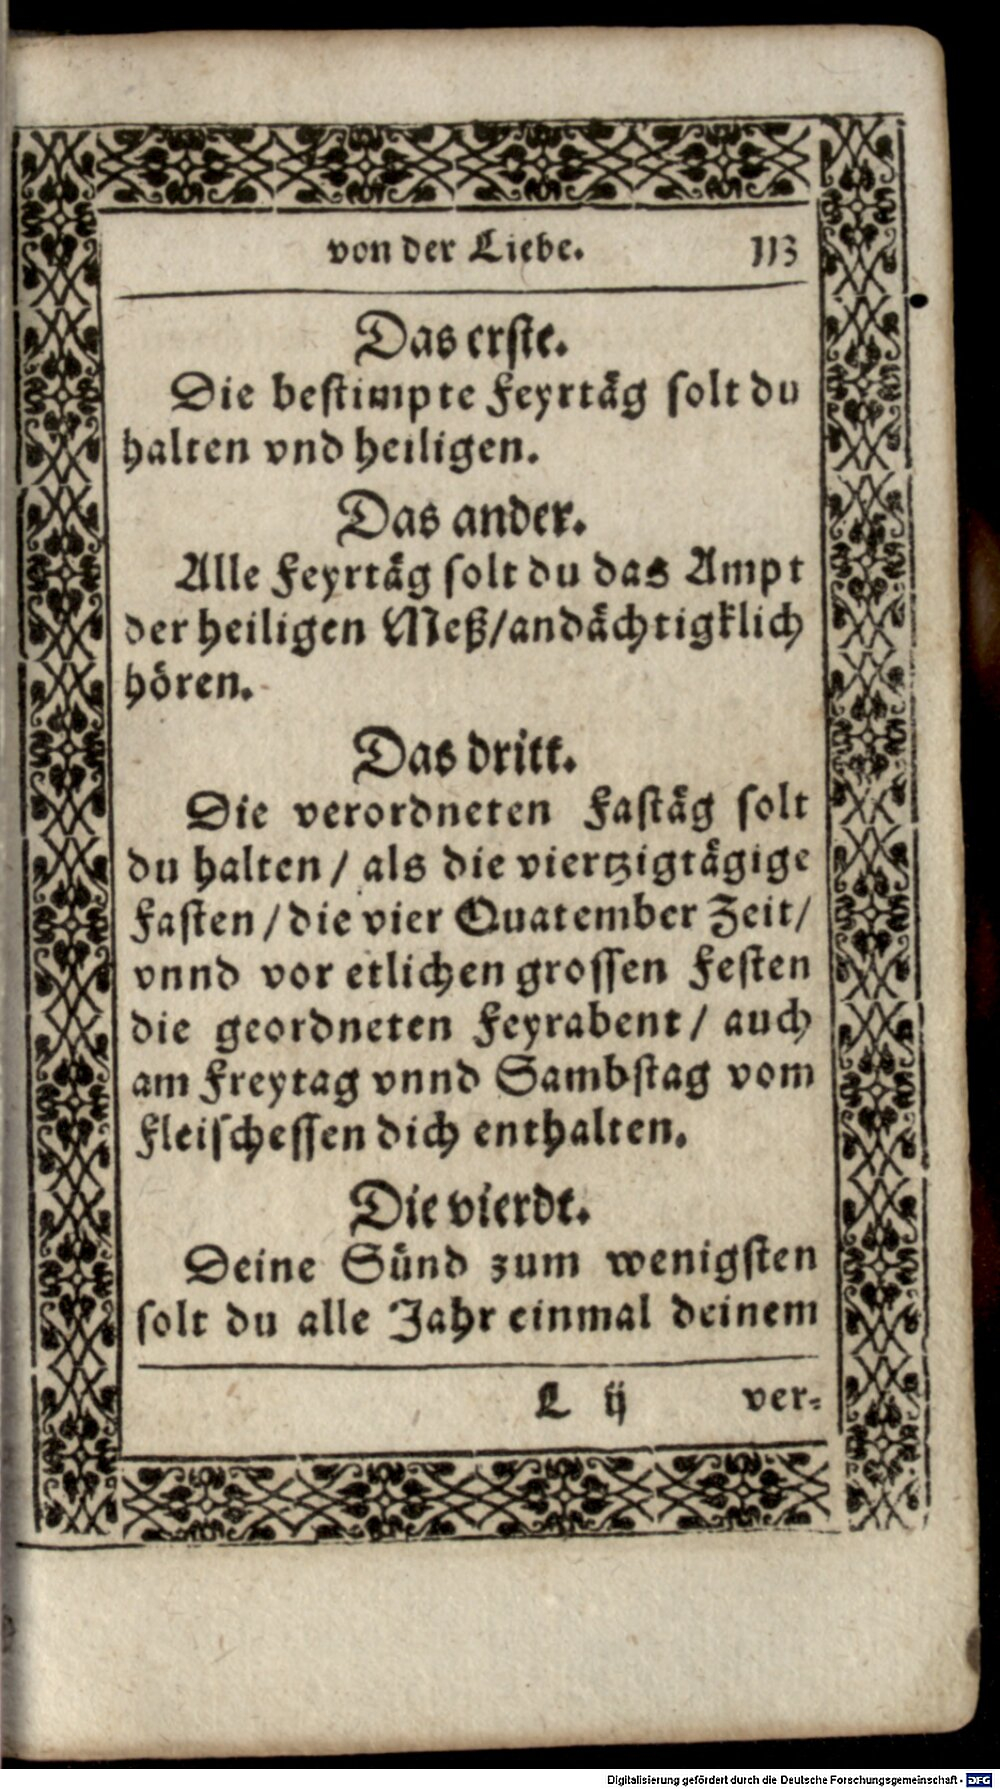 von der Liebe. 113
Das erste.
Die bestimpte Feyrtäg solt du
halten vnd heiligen.
Das ander.
Alle Feyrtäg solt du das Ampt
der heiligen Meß/andächtigklich
hören.
Das dritt.
Die verordneten Fastäg solt
du halten / als die viertzigtägige
Fasten / die vier Quatember Zeit/
vnnd vor etlichen grossen Festen
die geordneten Feyrabent / auch
am Freytag vnnd Sambstag vom
Fleischessen dich enthalten.
Die vierdt.
Deine Sünd zum wenigsten
solt du alle Jahr einmal deinem
L ij ver-
Digitalisierung gefördert durch die Deutsche Forschungsgemeinschaft - DFG